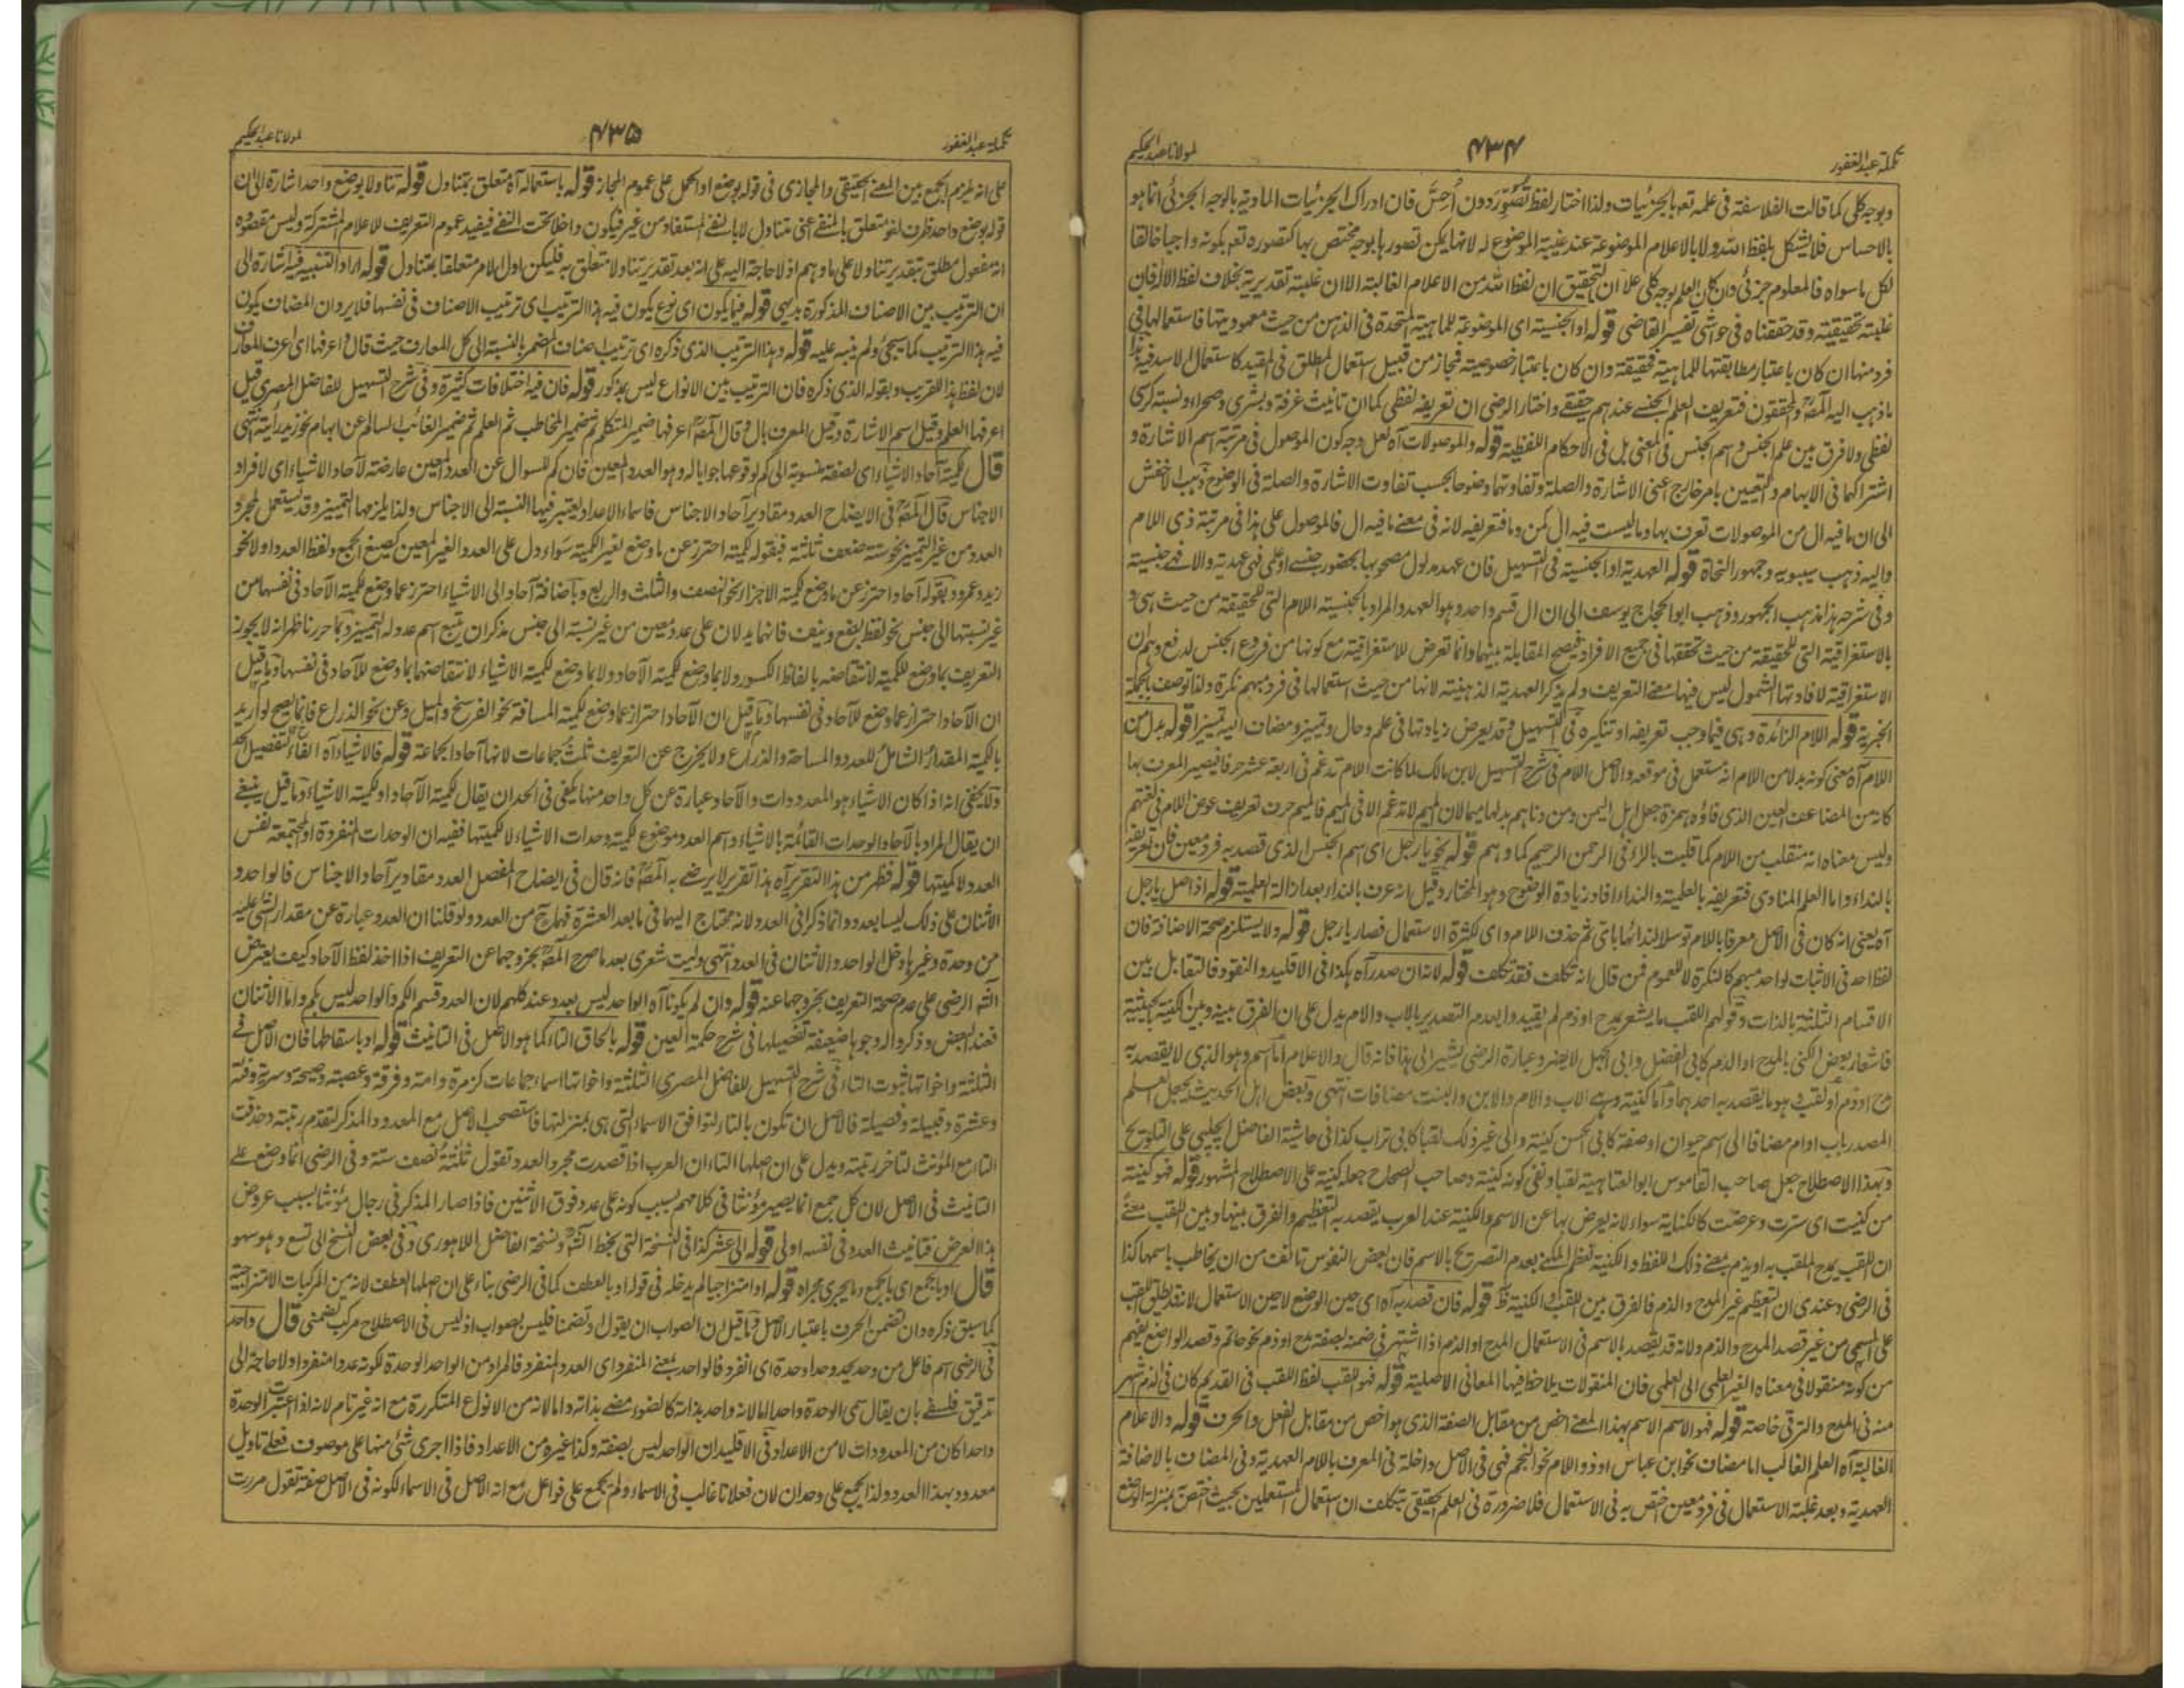 تكملة عبد الغفور
۴۳۴
لمولانا عبد الحكيم
وبوجه كلى كما قالت الفلاسفة فى علمه تعم بالجزئيات ولذا اختار لفظ تُصُوِّرَ دون أُحِسَّ فان ادراك الجزئيات المادية بالوجه الجزئى انما هو
بالاحساس فلا يشكل بلفظ الله ولا بالاعلام الموضوعة عند غيبة الموضوع له لانها يمكن تصورها بوجه مختص بها كتصوره تعم بكونه واجبا خالقا
لكل ما سواه فالمعلوم جزئى وان كان العلم بوجه كلى على ان التحقيق ان لفظ الله من الاعلام الغالبة الا ان غلبته تقديرية بخلاف لفظ الاله فان
غلبته تحقيقية وقد حققناه فى حواشى تفسير القاضى قوله او الجنسية اى الموضوعة للماهية المتحدة فى الذهن من حيث معهوديتها فاستعمالها فى
فرد منها ان كان باعتبار مطابقتها للماهية فحقيقة وان كان باعتبار خصوصيته فمجاز من قبيل استعمال المطلق فى المقيد كاستعمال الاسد فيه هذا
ما ذهب اليه المصَ والمحققون فتعريف العلم الجنسى عندهم حقيقى واختار الرضى ان تعريفه لفظى كما ان تانيث غرفة وبشرى وصحراء ونسبة كرسى
لفظى ولا فرق بين علم الجنس واسم الجنس فى المعنى بل فى الاحكام اللفظية قوله والموصولات آه لعل وجه كون الموصول فى مرتبة اسم الاشارة و
اشتراكهما فى الابهام والتعيين بامر خارج اعنى الاشارة والصلة وتفاوتهما وضوحا بحسب تفاوت الاشارة والصلة فى الوضوح ذهب الاخفش
الى ان ما فيه ال من الموصولات تعرف بها وما ليست فيه ال كمن وما فتعريفه لانه فى معنى ما فيه ال فالموصول على هذا فى مرتبة ذى اللام
واليه ذهب سيبويه وجمهور النحاة قوله العهدية او الجنسية فى التسهيل فان عهد مدلول مصحوبها بحضور حسى او علمى فهى عهدية والا فهى جنسية
وفى شرحه هذا مذهب الجمهور وذهب ابو الحجاج يوسف الى ان ال قسم واحد وهو العهد والمراد بالجنسية اللام التى للحقيقة من حيث هى و
بالاستغراقية التى للحقيقة من حيث تحققها فى جميع الافراد فيصح المقابلة بينهما وانما تعرض للاستغراقية مع كونها من فروع الجنس لدفع وهم ان
الاستغراقية لافادتها الشمول ليس فيها معنى التعريف ولم يذكر العهدية الذهنية لانها من حيث استعمالها فى فرد مبهم نكرة ولذا توصف بالجملة
الخبرية قوله اللام الزائدة وهى فيما وجب تعريفه او تنكيره فى التسهيل قد يعرض زيادتها فى علم وحال وتمييز ومضاف اليه تمييز قوله بدل من
اللام آه معنى كونه بدلا من اللام انه مستعمل فى موقعه والاصل اللام فى شرح التسهيل لابن مالك لما كانت اللام تدغم فى اربعة عشر حرفا فيصير المعرف بها
كانه من المضاعف العين الذى فاؤه همزة جعل اهل اليمن ومن داناهم بدلها ميما لان الميم لا تدغم الا فى الميم فالميم حرف تعريف عوض اللام فى لغتهم
وليس معناه انه منقلب من اللام كما قلبت بالراء فى الرحمن الرحيم كما وهم قوله نحو يا رجل اى اسم الجنس الذى قصد به فرد معين فان تعريفه
بالنداء واما العلم المنادى فتعريفه بالعلمية والنداء افاد زيادة الوضوح وهو المختار وقيل انه عرف بالنداء بعد ازالة العلمية قوله اذ اصل يا رجل
آه يعنى انه كان فى الاصل معرفا باللام توسلا لندائها باى ثم حذف اللام واى لكثرة الاستعمال فصار يا رجل قوله ولا يستلزم صحة الاضافة فان
لفظ احد فى الاثبات لواحد مبهم كالنكرة لا للعموم فمن قال انه تكلف فقد تكلف قوله لانه ان صدر آه هكذا فى الاقليد والنقود فالتقابل بين
الاقسام الثلثة بالذات وقولهم اللقب ما يشعر بمدح او ذم لم يقيدوا بعدم التصدير بالاب والام يدل على ان الفرق بينه وبين الكنية بالحيثية
فاشعار بعض الكنى بالمدح او الذم كابى الفضل وابى الجهل لا يضر وعبارة الرضى يشير الى هذا فانه قال والاعلام اما اسم وهو الذى لا يقصد به
مدح او ذم او لقب وهو ما يقصد به احدهما واما كنية وهى الاب والام والابن والبنت مضافات انتهى وبعض اهل الحديث يجعل العلم
المصدر باب او ام مضافا الى اسم حيوان او صفة كابى الحسن كنية والى غير ذلك لقبا كابى تراب كذا فى حاشية الفاضل الچلپى على التلويح
وبهذا الاصطلاح جعل صاحب القاموس ابو العتاهية لقبا ونفى كونه كنية وصاحب الصحاح جعله كنية على الاصطلاح المشهور قوله فهو كنية
من كنيت اى سترت وعرضت كالكناية سواء لانه يعرض بها عن الاسم والكنية عند العرب يقصد به التعظيم والفرق بينها وبين اللقب معنى
ان اللقب يمدح الملقب به او يذم بمعنى ذلك اللفظ والكنية تعظم المكنى بعدم التصريح بالاسم فان بعض النفوس تانف من ان يخاطب باسمها كذا
فى الرضى وعندى ان التعظيم غير المدح والذم فالفرق بين اللقب والكنية ظ قوله فان قصد به آه اى حين الوضع لا حين الاستعمال لانه قد يطلق اللقب
على المسمى من غير قصد المدح والذم ولانه قد يقصد بالاسم فى الاستعمال المدح او الذم اذا اشتهر فى ضمنه بصفة مدح او ذم نحو حاتم وقصد الواضع يفهم
من كونه منقولا فى معناه الغير العلمى الى العلمى فان المنقولات يلاحظ فيها المعانى الاصلية قوله فهو اللقب لفظ اللقب فى القديم كان فى الذم اشهر
منه فى المدح والترقى خاصة قوله فهو الاسم الاسم بهذا المعنى اخص من مقابل الصفة الذى هو اخص من مقابل الفعل والحرف قوله والاعلام
الغالبة آه العلم الغالب اما مضاف نحو ابن عباس او ذو اللام نحو النجم فهى فى الاصل داخلة فى المعرف باللام العهدية وفى المضاف بالاضافة
العهدية وبعد غلبة الاستعمال فى فرد معين اختص به فى الاستعمال فلا ضرورة فى العلم الحقيقى بتكلف ان استعمال المستعملين بحيث اختص بمنزلة الوضع
تكملة عبد الغفور
۴۳۵
لمولانا عبد الحكيم
على انه يلزم الجمع بين المعنى الحقيقى والمجازى فى قوله بوضع او الحمل على عموم المجاز قوله باستعماله آه متعلق بمتناول قوله تناولا بوضع واحد اشارة الى ان
قوله بوضع واحد ظرف لغو متعلق بالمنفى اعنى متناول لا بالنفى المستفاد من غير فيكون داخلا تحت النفى فيفيد عموم التعريف للاعلام المشتركة وليس مقصوده
انه مفعول مطلق بتقدير تناولا على ما وهم اذ لا حاجة اليه على انه بعد تقدير تناولا متعلق به فليكن اول الامر متعلقا بمتناول قوله اراد التنبيه فيه اشارة الى
ان الترتيب بين الاصناف المذكورة بديهى قوله فيما يكون اى نوع يكون فيه هذا الترتيب اى ترتيب الاصناف فى نفسها فلا يرد ان المضاف يكون
فيه هذا الترتيب كما سيجى ولم ينبه عليه قوله وبهذا الترتيب الذى ذكره اى ترتيب اصناف المضمر بالنسبة الى كل المعارف حيث قال واعرفها اى اعرف المعارف
لان لفظ هذا للقريب وبقوله الذى ذكره فان الترتيب بين الانواع ليس بمذكور قوله فان فيه اختلافات كثيرة وفى شرح التسهيل للفاضل المصرى قيل
اعرفها العلم وقيل اسم الاشارة وقيل المعرف بال وقال المصَ اعرفها ضمير المتكلم ثم ضمير المخاطب ثم العلم ثم ضمير الغائب السالم عن ابهام نحو زيد رأيته انتهى
قال لكمية آحاد الاشياء اى لصفة منسوبة الى كم لوقوعها جوابا له وهو العدد المعين فان كم للسوال عن العدد المعين عارضة لآحاد الاشياء اى لافراد
الاجناس قال المصَ فى الايضاح العدد مقادير آحاد الاجناس فاسماء الاعداد يعتبر فيها النسبة الى الاجناس ولذا يلزمها التمييز وقد يستعمل لمجرد
العدد من غير التمييز نحو ستة ضعف ثلثة فبقوله لكمية احترز عن ما وضع لغير الكمية سواء دل على العدد الغير المعين كصيغ الجمع ولفظ العدد او لا نحو
زيد وعمرو وبقوله آحاد احترز عن ما وضع لكمية الاجزاء نحو النصف والثلث والربع وباضافة آحاد الى الاشياء احترز عما وضع لكمية الآحاد فى نفسها من
غير نسبتها الى جنس نحو لفظ بضع ونيف فانهما يدلان على عدد معين من غير نسبة الى جنس مذكر ان يتبع اسم عدد له التمييز وبما حررنا ظهر انه لا يجوز
التعريف بما وضع للكمية لانتقاضه بالفاظ الكسور ولا بما وضع لكمية الآحاد ولا بما وضع لكمية الاشياء لانتقاضهما بما وضع للآحاد فى نفسها وما قيل
ان الآحاد احتراز عما وضع للآحاد فى نفسها وما قيل ان الآحاد احتراز عما وضع لكمية المسافة نحو الفرسخ والميل وعن نحو الذراع فانما يصح لو اريد
بالكمية المقدار الشامل للعدد والمساحة والذراع ولا يخرج عن التعريف ثلث جماعات لانها آحاد الجماعة قوله فالاشياء آه الفاء لتفصيل الحد
ولا يخفى انه اذا كان الاشياء هو المعدودات والآحاد عبارة عن كل واحد منها يكفى فى الحد ان يقال لكمية الآحاد او لكمية الاشياء وما قيل ينبغى
ان يقال المراد بالآحاد الوحدات القائمة بالاشياء واسم العدد موضوع لكمية وحدات الاشياء لا لكميتها ففيه ان الوحدات المنفردة او المجتمعة نفس
العدد لا كميتها قوله فظهر من هذا التقرير آه هذا تقرير لا يرضى به المصَ فانه قال فى ايضاح المفصل العدد مقادير آحاد الاجناس فالواحد و
الاثنان على ذلك ليسا بعدد وانما ذكرا فى العدد لانه محتاج اليهما فى ما بعد العشرة فهما ح من العدد ولو قلنا ان العدد عبارة عن مقدار الشئ عليه
من وحدة وغيرها دخل الواحد والاثنان فى العدد انتهى وليت شعرى بعد ما صرح المصَ بخروجهما عن التعريف اذا اخذ لفظ الآحاد كيف يعترض
الشَ الرضى على عدم صحة التعريف بخروجهما عنه قوله وان لم يكونا آه الواحد ليس بعدد عند كلهم لان العدد قسم الكم والواحد ليس بكم واما الاثنان
فعند البعض وذكروا له وجوها ضعيفة تفصيلها فى شرح حكمة العين قوله بالحاق التاء كما هو الاصل فى التانيث قوله او باسقاطها فان الاصل فى
الثلثة واخواتها ثبوت التاء فى شرح التسهيل للفاضل المصرى الثلثة واخواتها اسماء جماعات كزمرة وامة وفرقة وعصبة وصيحة وسرية وفئة
وعشرة وقبيلة وفصيلة فالاصل ان تكون بالتاء لتوافق الاسماء التى هى بمنزلتها فاستصحب الاصل مع المعدود المذكر لتقدم رتبته وحذفت
التاء مع المؤنث لتاخر رتبته ويدل على ان اصلها التاء ان العرب اذا قصدت مجرد العدد تقول ثلثة نصف ستة وفى الرضى انما وضع على
التانيث فى الاصل لان كل جمع انما يصير مؤنثا فى كلامهم بسبب كونه على عدد فوق الاثنين فاذا صار المذكر فى رجال مؤنثا بسبب عروض
هذا العرض فتانيث العدد فى نفسه اولى قوله الى عشر كذا فى النسخة التى بخط الشَ ونسخة الفاضل اللاهورى وفى بعض النسخ الى تسع وهو سهو
قال او بالجمع اى بالجمع وما يجرى مجراه قوله او امتزاجيا لم يدخله فى قوله او بالعطف كما فى الرضى بناء على ان اصلها العطف لانه من المركبات الامتزاجية
كما سبق ذكره وان تضمن الحرف باعتبار الاصل وما قيل ان الصواب ان يقول او تضمنا فليس بصواب اذ ليس فى الاصطلاح مركب تضمنى قال واحد
فى الرضى اسم فاعل من وحد يحد وحدا وحدة اى انفرد فالواحد بمعنى المنفرد اى العدد المنفرد فالمراد من الواحد الوحدة لكونه عددا منفردا ولا حاجة الى
تدقيق فلسفى بان يقال سمى الوحدة واحدا اما لانه واحد بذاته كالضوء مضئ بذاته واما لانه من الانواع المتكررة مع انه غير تام لانه اذا اعتبرت الوحدة
واحدا كان من المعدودات لا من الاعداد فى الاقليد ان الواحد ليس بصفة وكذا غيره من الاعداد فاذا اجرى شئ منها على موصوف فعلى تاويل
معدود بهذا العدد ولذا يجمع على وحدان لان فعلانا غالب فى الاسماء ولم يجمع على فواعل مع انه الاصل فى الاسماء لكونه فى الاصل صفة تقول مررت